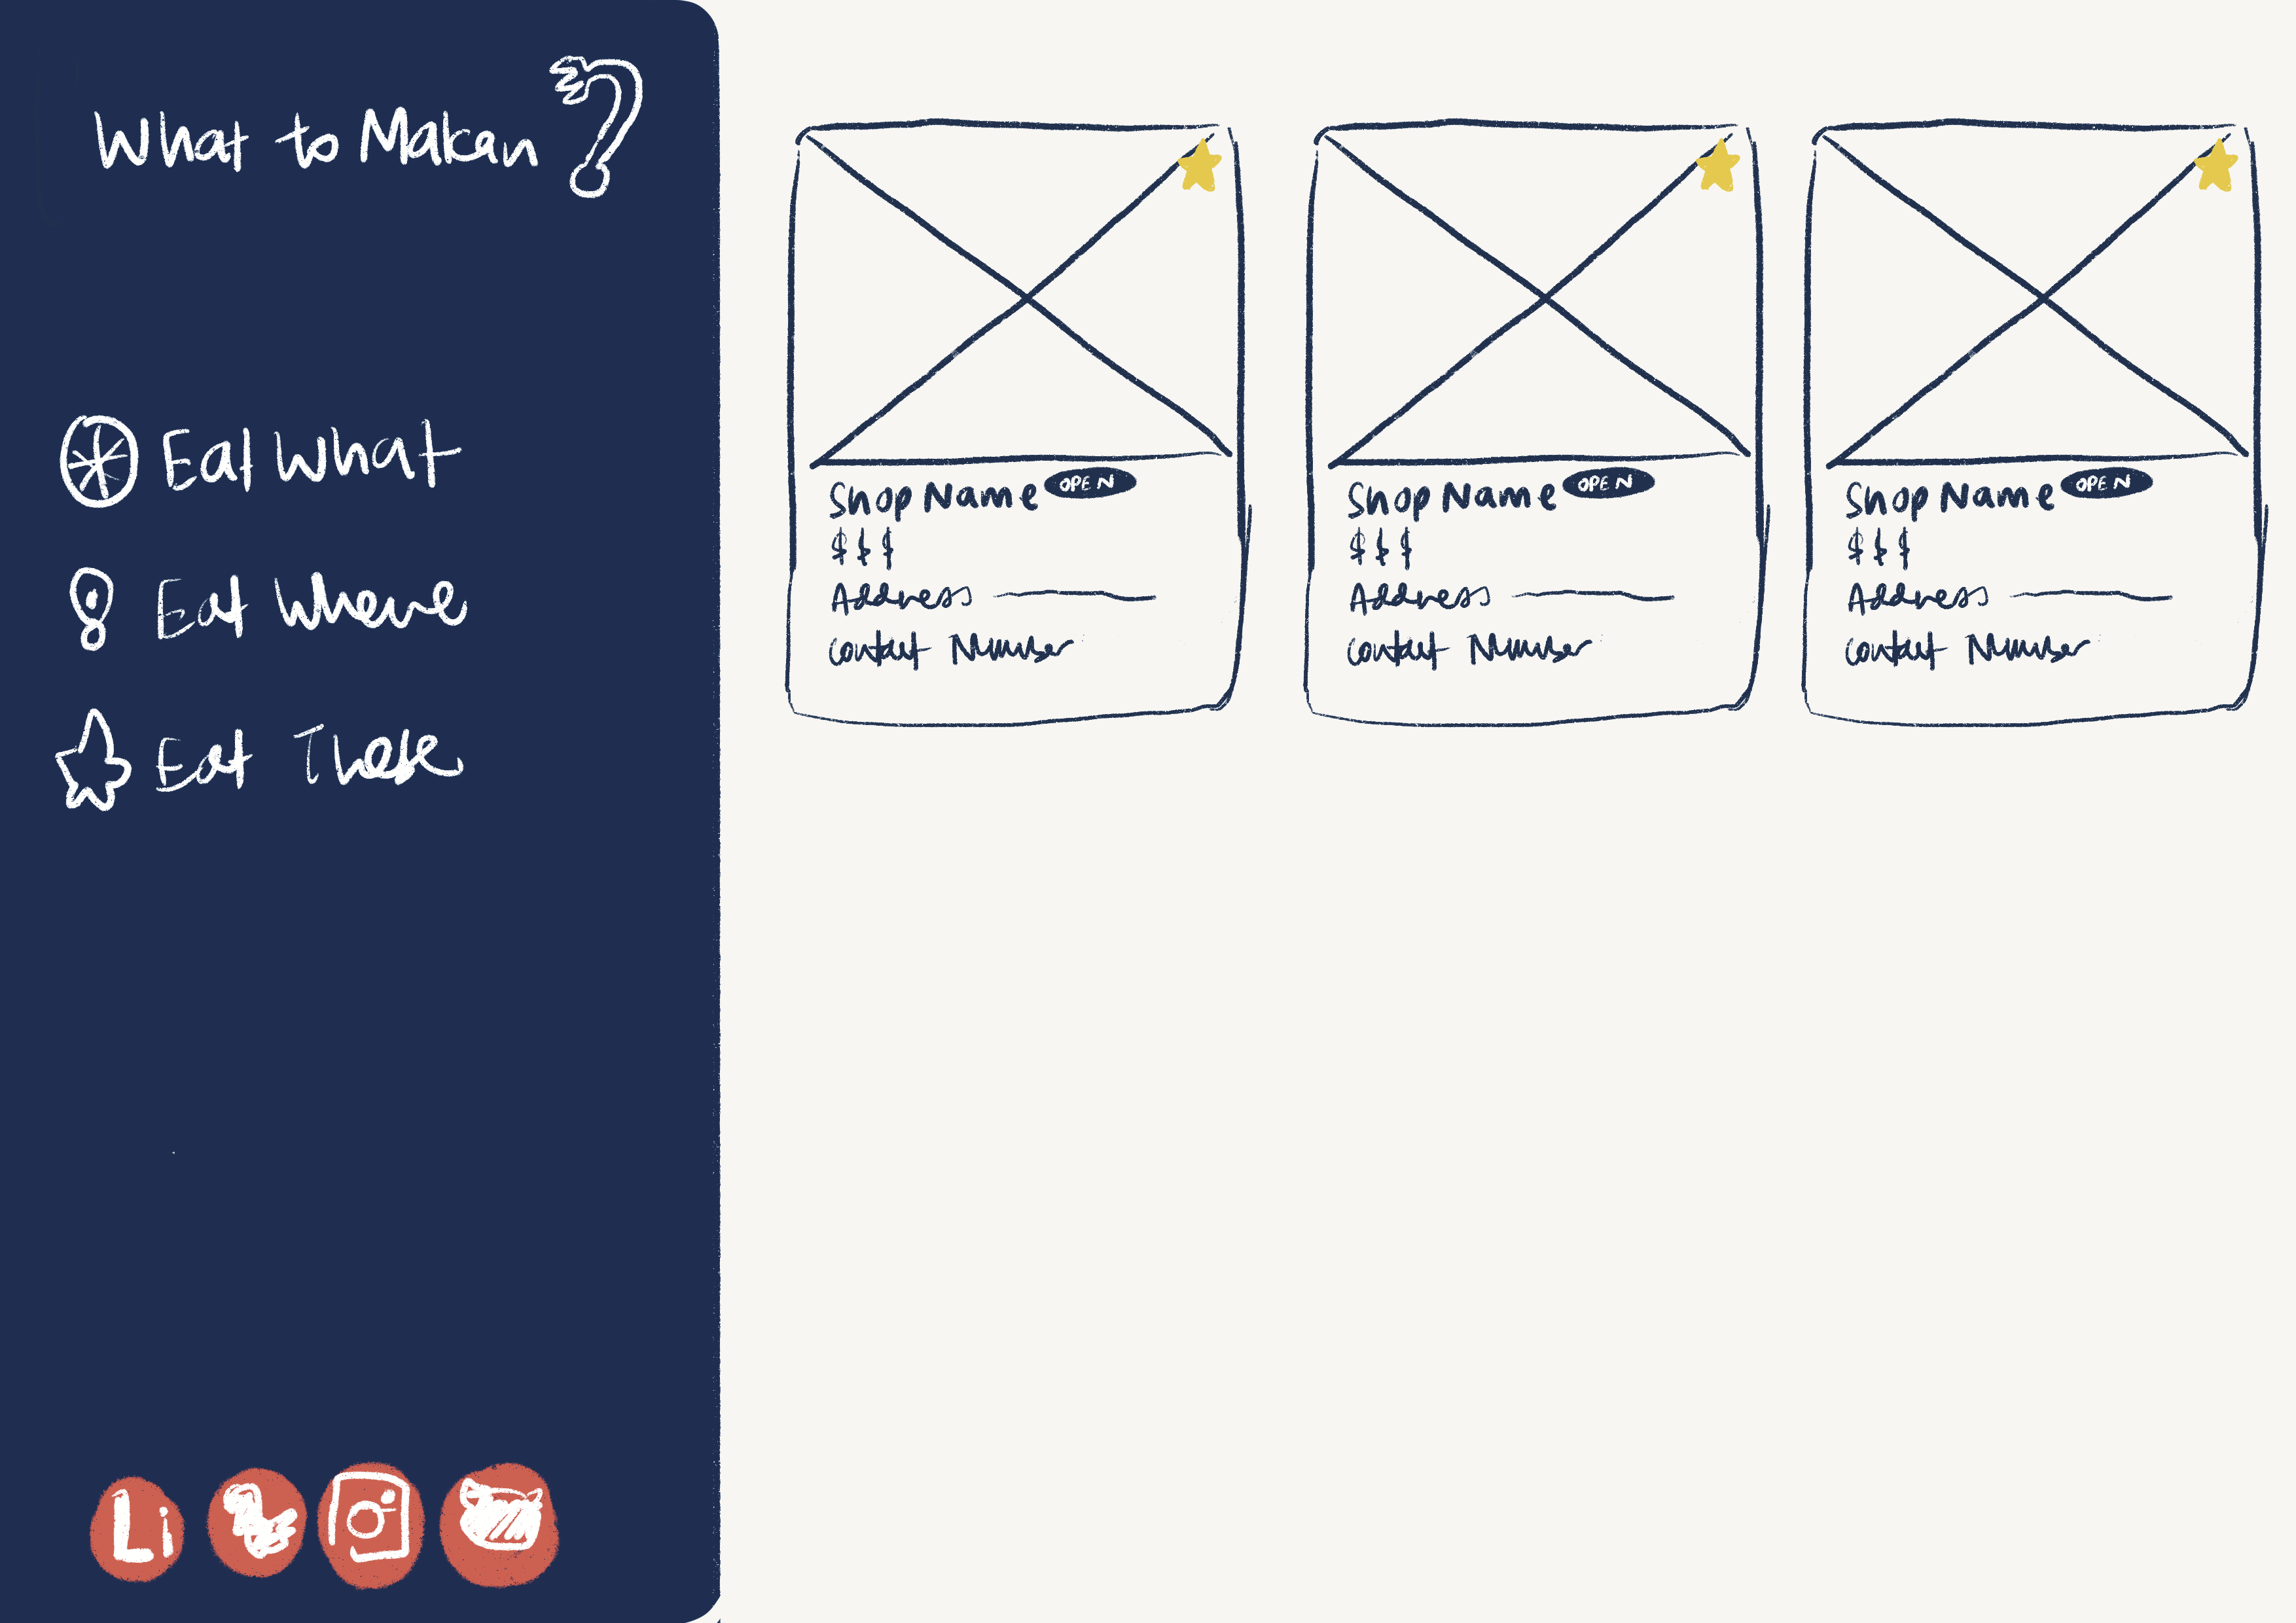 What to Makan?
Eat What
Eat Where
Eat These
Li
Shop Name OPEN
$$$
Address
Contact Number
Shop Name OPEN
$$$
Address
Contact Number
Shop Name OPEN
$$$
Address
Contact Number